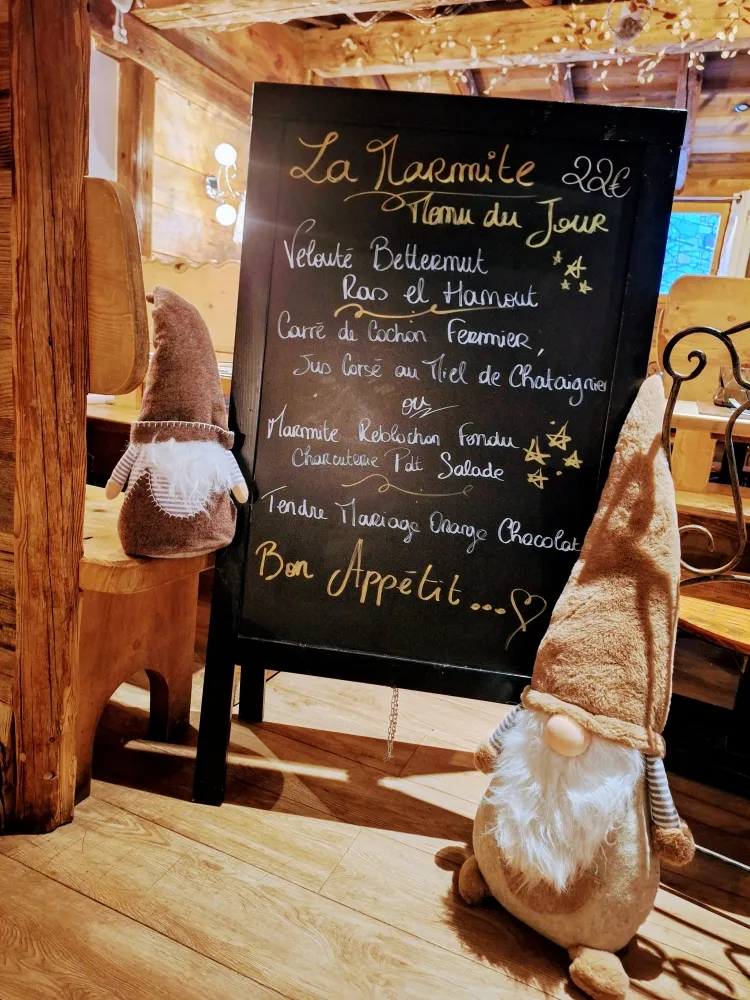 La Marmite 22€
Menu du Jour
Velouté Betternut
Ras el Hanout
Carré de Cochon Fermier,
Jus Corsé au Miel de Chataignier
ou
Marmite Reblochon Fondu
Charcuterie Pdt Salade
Tendre Mariage Orange Chocolat
Bon Appétit...